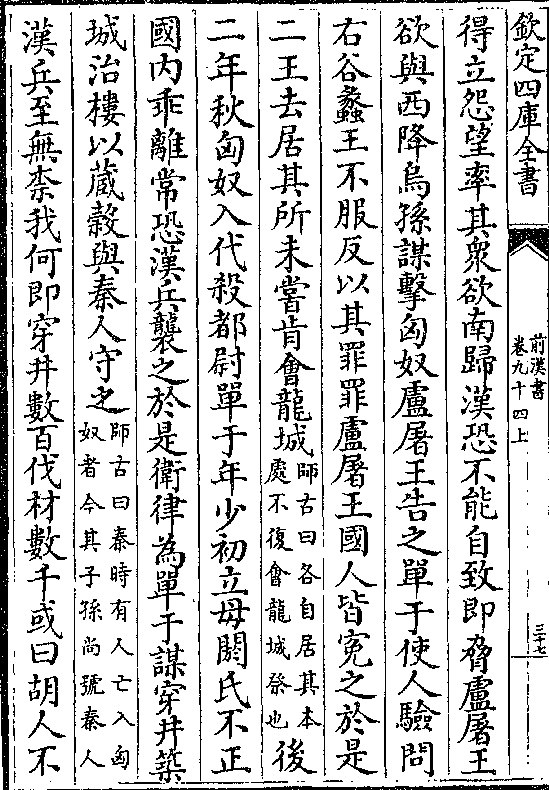 欽定四庫全書
前漢書
卷九十四上
三十七
得立怨望率其衆欲南歸漢恐不能自致即脅盧屠王
欲與西降烏孫謀擊匈奴盧屠王告之單于使人驗問
右谷蠡王不服反以其罪罪盧屠王國人皆寃之於是
二王去居其所未嘗肯會龍城師古曰各自居其本處不復會龍城祭也後
二年秋匈奴入代殺都尉單于年少初立母閼氏不正
國内乖離常恐漢兵襲之於是衛律為單于謀穿井築
城治樓以蔵穀與秦人守之師古曰秦時有人亡入匈奴者今其子孫尚號秦人
漢兵至無柰我何即穿井數百伐材數千或曰胡人不